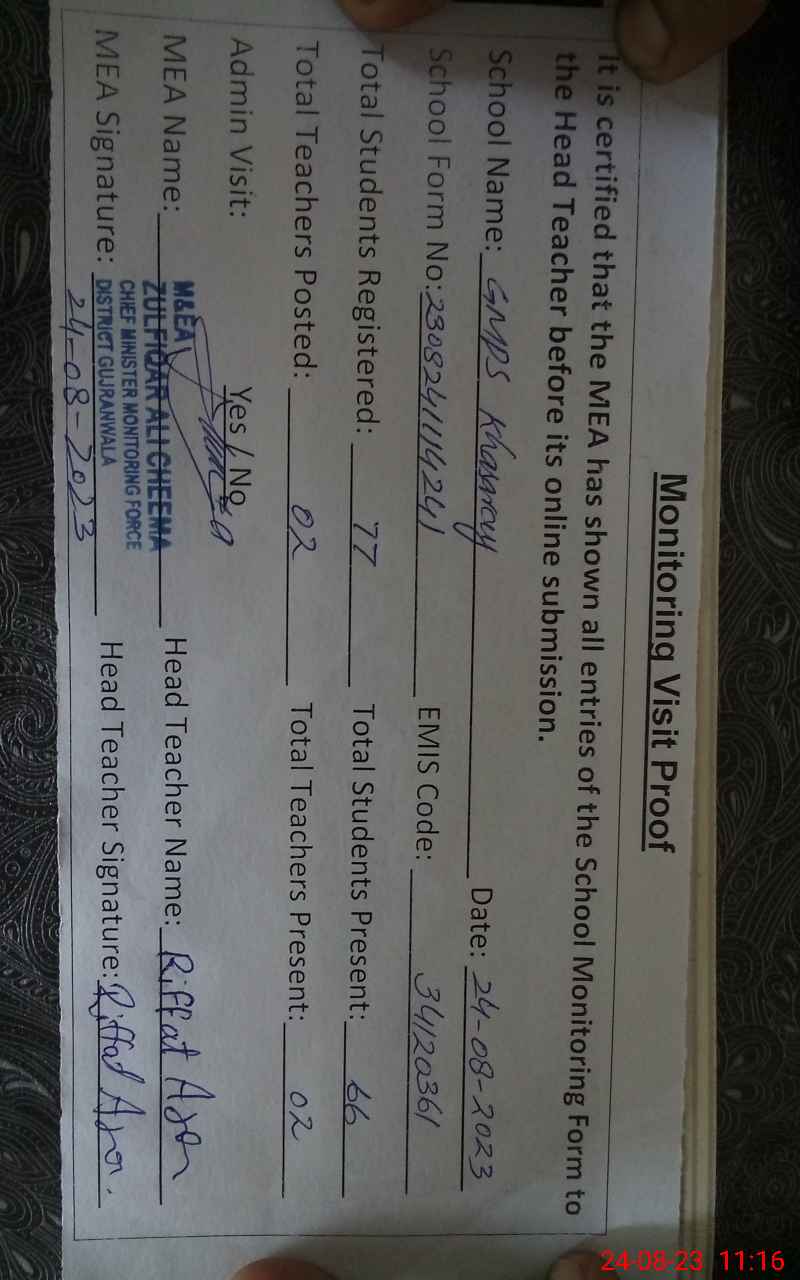 Monitoring Visit Proof
It is certified that the MEA has shown all entries of the School Monitoring Form to
the Head Teacher before its online submission.
School Name: GMPS Khasray Date: 24-08-2023
School Form No: 2308241114241 EMIS Code: 34120361
Total Students Registered: 77 Total Students Present: 66
Total Teachers Posted: 02 Total Teachers Present: 02
Admin Visit: Yes / No
MEA Name: M&EA ZULFIQAR ALI CHEEMA Head Teacher Name: Riffat
CHIEF MINISTER MONITORING FORCE
MEA Signature: DISTRICT GUJRANWALA Head Teacher Signature: Riffat
24-08-2023
24-08-23 11:16